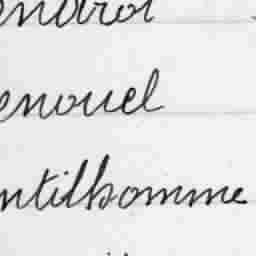 endroi
enouel
ntilhomme